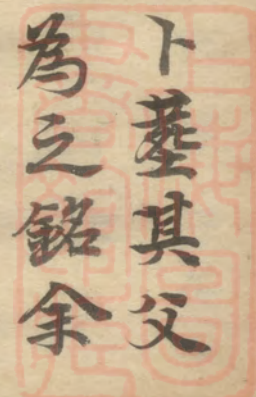 卜塟其父
為之銘余